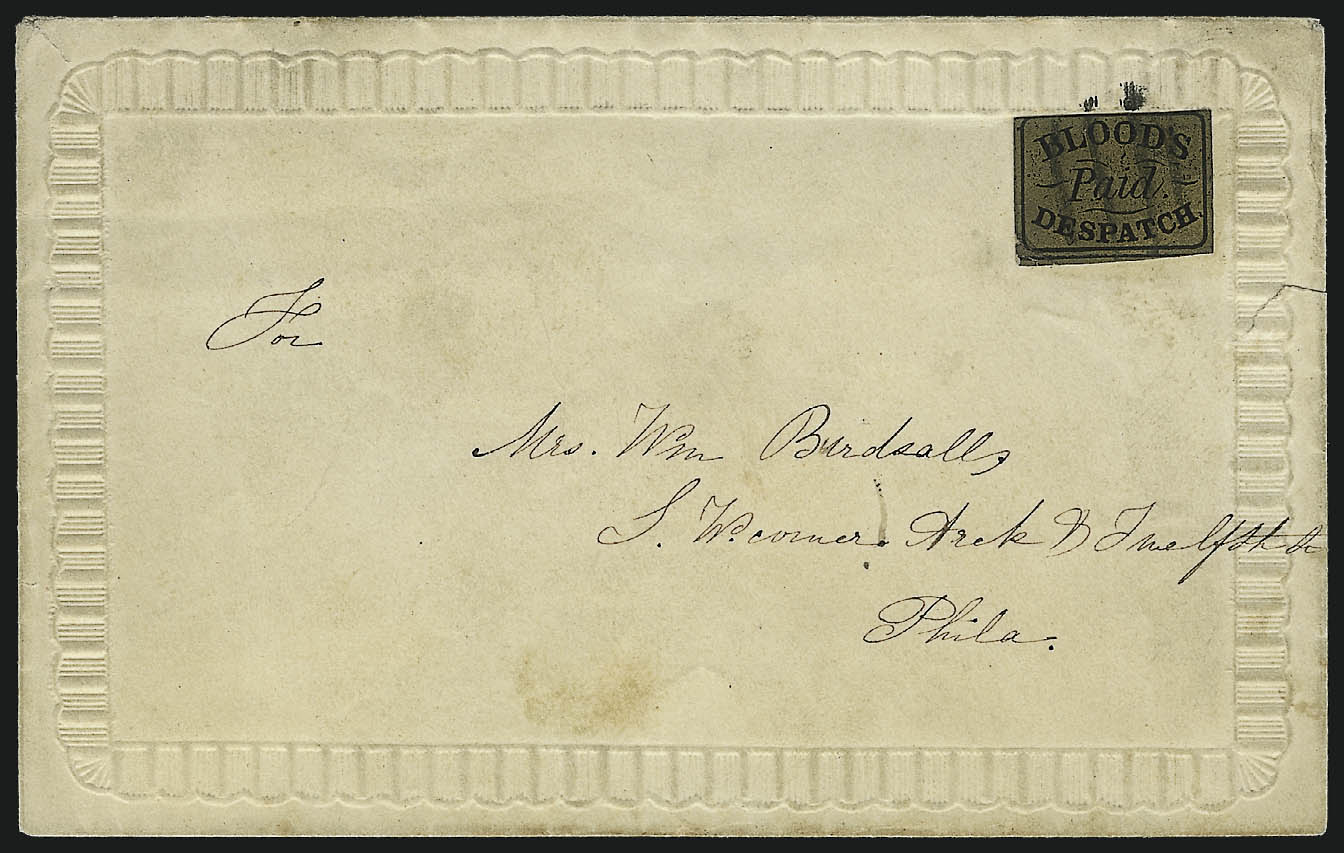 BLOOD'S
Paid.
DESPATCH
For
Mrs. Wm Birdsalls,
S. W. corner. Arch & Twelfth St
Phila.